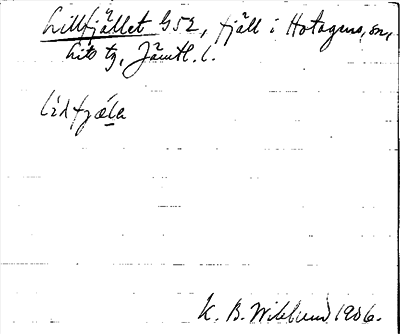 Lillfjället G52, fjäll i Hotagens sn,
Lits tg, Jämtl. l.
K. B. Wiklund 1906.